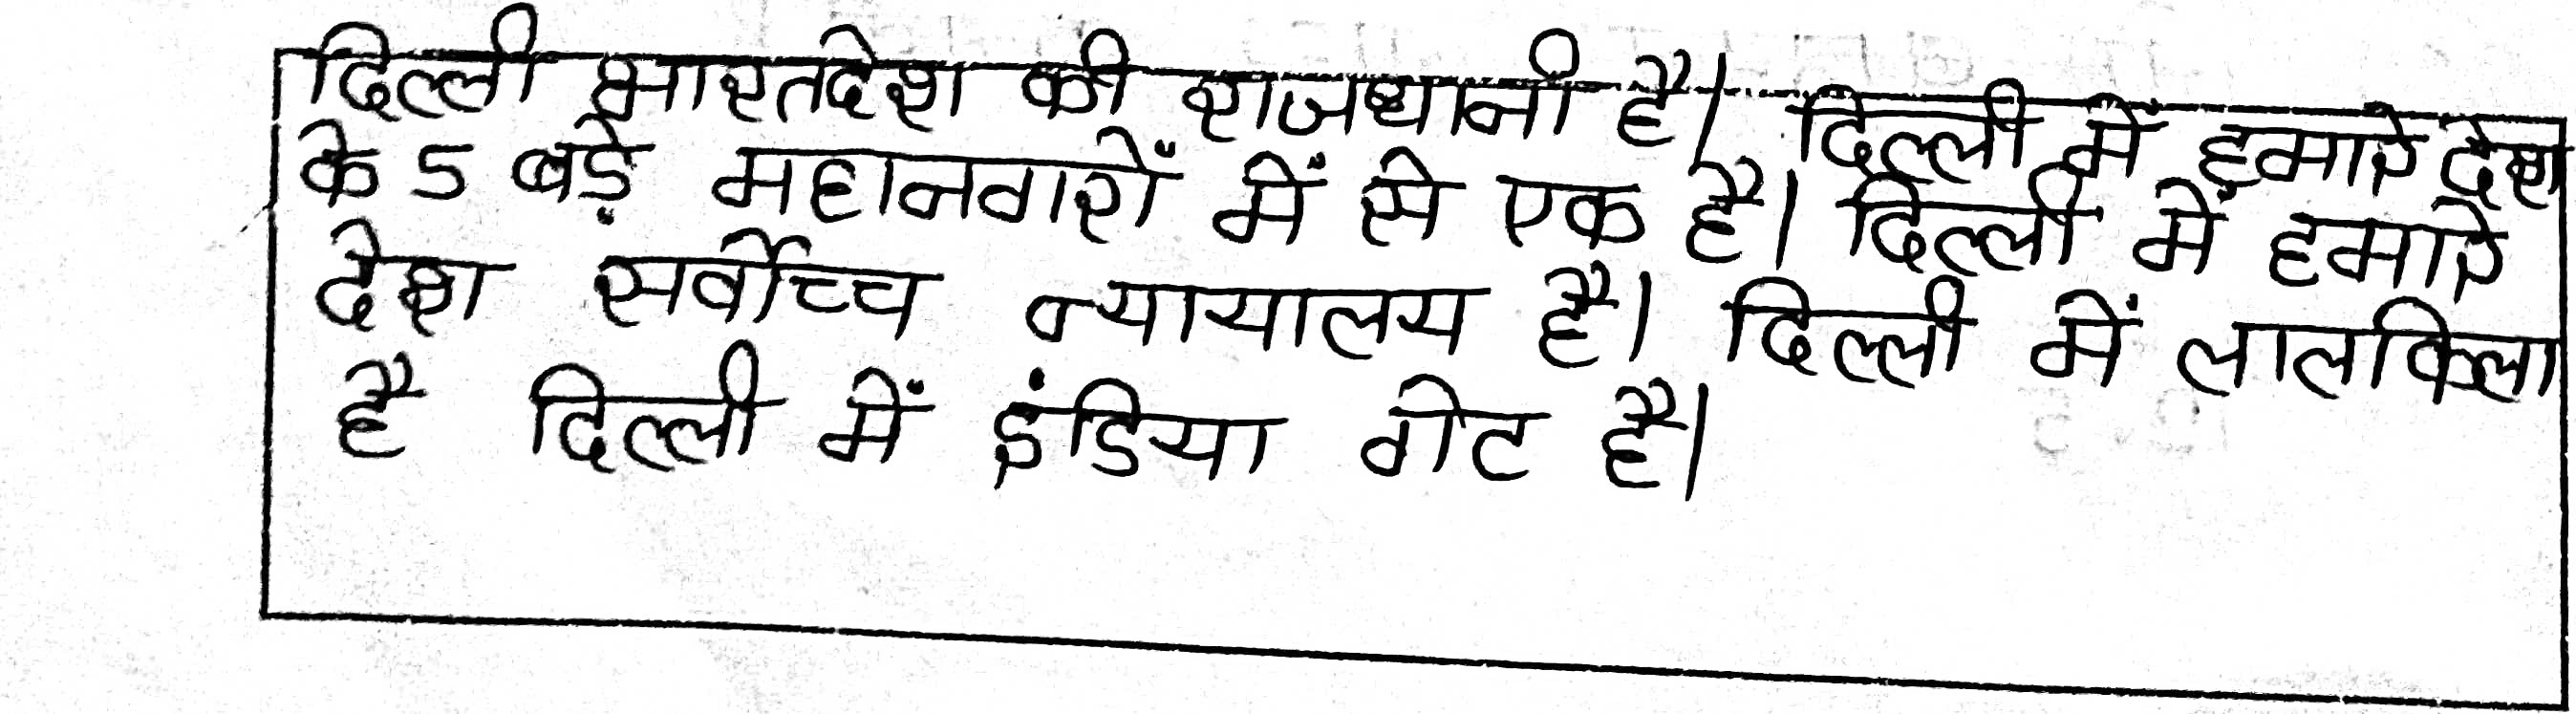 दिल्ली भारतदेश की राजधानी है। दिल्ली में हमारे देश
के 5 बड़े महानगरों में से एक है। दिल्ली में हमारे
देश सर्वोच्च न्यायालय है। दिल्ली में लालकिला
है दिल्ली में इंडिया गेट है।